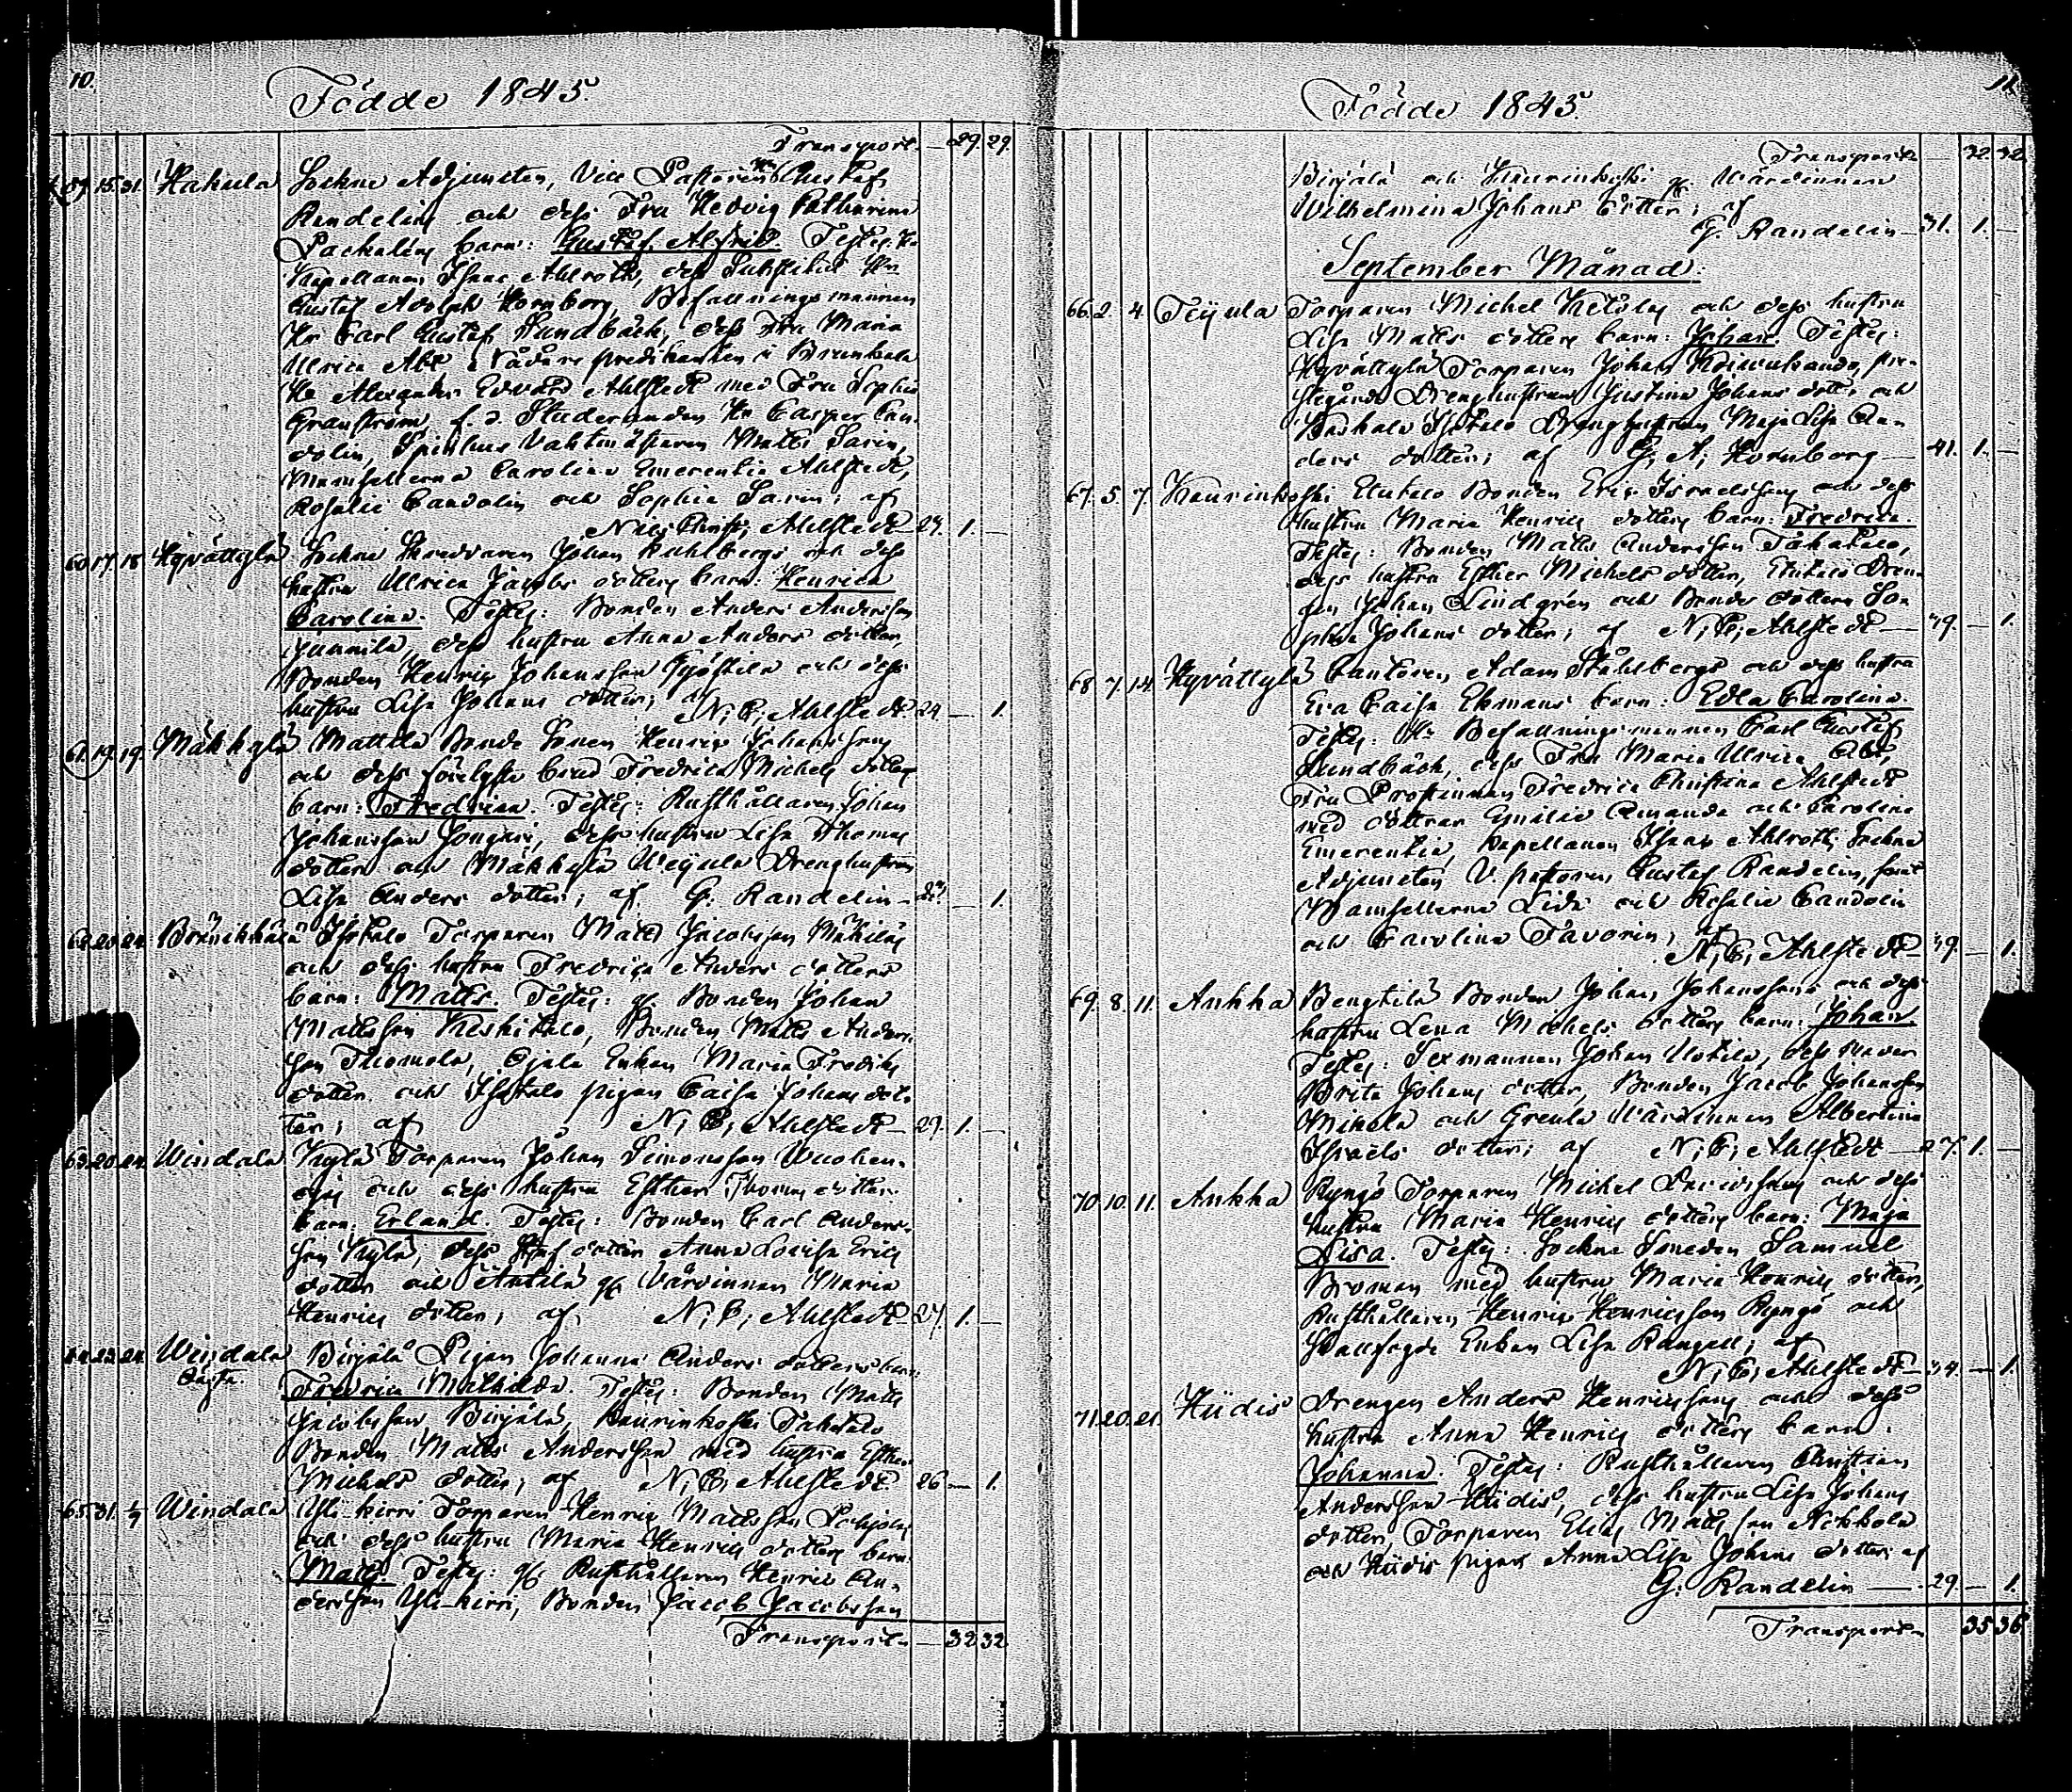 10.
Födde 1845.
Transport — 29. 29.
59. 15. 31. Hakula Sockne Adjuncten, Vice Pastoren Hr Gustaf
Randelins och dess Fru Hedvig Catharina
Pachaléns barn: Gustaf Alfrid. Testes: Hr
Kapellanen Isaac Ahlroth, dess Substitut Hr
Gustaf Adolph Hornborg, Befallningsmannen
Hr Carl Gustaf Sundbäck, dess Fru Maria
Ulrica Abt, Nådårs predikanten i Brunkala
Hr Alexander Edvard Ahlstedt med Fru Sophie
Granström, f. d. Studeranden Hr Casper Can-
dolin, Spinhus Vaktmästaren Matts Saren,
Mamsellerna Carolina Emerentia Ahlstedt,
Rosalie Candolin och Sophia Saren; af
Nils Christ. Ahlstedt 27. 1. —
60. 17. 18. Hyvättylä Sockne Skredaren Johan Kuhlbergs och dess
hustru Ulrica Jacobs dotters barn: Henrica
Carolina. Testes: Bonden Anders Andersson
Junnila, dess hustru Anna Anders dotter,
Bonden Henric Johansson Gjöstila och dess
hustru Lisa Johans dotter; af
N. C. Ahlstedt. 24 — 1.
61. 19. 19. Mäkkylä Mattila Bonde Sonen Henric Johanssons
och dess förelofte brud Fredrica Michels dotters
barn: Fredrica. Testes: Rusthållaren Johan
Johansson Jongari, dess hustru Lisa Thomas
dotter och Mäkkylä Ueijula Drenghustrun
Lisa Anders dotter; af G. Randelin — 1.
62. 20. 24. Bränikkälä Isotalo Torparen Matts Jacobsson Mäkiläs
och dess hustru Fredrica Anders dotters
barn: Matts. Testes: gf. Bonden Johan
Mattsson Keskitalo, Bonden Matts Anders-
son Thomola, Ojala Enkan Maria Fredriks
dotter och Isotalo pigan Caisa Johans dot-
ter; af N. C. Ahlstedt — 29. 1. —
63. 20. 24. Windala Kylä Torparen Johan Simonsson Wuohen-
ojas och dess hustru Esther Thomas dotters
barn: Erland. Testes: Bonden Carl Anders-
son Kylä, dess Styf dotter Anna Lovisa Erics
dotter och Anttila gf. Värdinnan Maria
Henrics dotter; af N. C. Ahlstedt 27. 1. —
64. 22. 24. Windala Birjälä Pigan Johanna Anders dotters barn
Oägta. Fredrica Mathilda. Testes: Bonden Matts
Jacobsson Birjälä, Kaurinkoski Takatalo
Bonden Matts Andersson med hustru Esther
Michels dotter; af N. C. Ahlstedt. 26 — 1.
65. 31. 4/9 Windala Yli-kirri Torparen Henric Mattsson Pohjolas
och dess hustru Maria Henrics dotters barn:
Matts. Testes: gf. Rusthållaren Henric An-
dersson Yli-kirri, Bonden Jacob Jacobsson
Transport — 32. 32.
11.
Födde 1845.
Transport — 32. 32.
Birjälä och Kaurinkoski gf. Värdinnan
Wilhelmina Johans dotter; af
G. Randelin — 31. 1. —
September Månad:
66. 2. 4. Teijula Torparen Michel Ketolas och dess hustru
Lisa Matts dotters barn: Johan. Testes:
Hyvättylä Torparen Johan Koivukando, pre-
stegårds Drenghustrun Justina Johans dotter och
Kaskala Isotalo Drenghustrun Maja Lisa An-
ders dotter; af G. A. Hornborg — 41. 1. —
67. 5. 7. Kaurinkoski Ellutalo Bonden Eric Israelssons och dess
hustru Maria Henrics dotters barn: Fredrica.
Testes: Bonden Matts Andersson Takatalo,
dess hustru Esther Michels dotter, Elutalo Dren-
gen Johan Lindgrén och Bonde dottren So-
phia Johans dotter; af N. C. Ahlstedt — 39. — 1.
68. 7. 14. Hyvättylä Cantoren Adam Ståhlbergs och dess hustru
Eva Caisa Ekmans barn: Edla Carolina.
Testes: Hr Befallningsmannen Carl Gustaf
Sundbäck, dess Fru Maria Ulrica Abt,
Fru Prostinnan Fredrica Christina Ahlstedt
med döttrar Emilie Amanda och Carolina
Emerentia, Kapellanen Isaac Ahlroth, Sockne
Adjuncten V. pastoren Gustaf Randelin, samt
Mamsellerna Lida och Rosalie Candolin
och Carolina Favorin; af
N. C. Ahlstedt — 39. — 1.
69. 8. 11. Ankka Bengtilä Bonden Johan Johanssons och dess
hustru Lena Michels dotters barn: Johan.
Testes: Sexmannen Johan Uotila, dess svär
Brita Johans dotter, Bonden Jacob Johansson
Mikola och Greula Värdinnan Albertina
Israels dotter; af N. C. Ahlstedt — 27. 1. —
70. 10. 11. Ankka Ryngö Torparen Michel Davidssons och dess
hustru Maria Henrics dotters barn: Maja
Lisa. Testes: Sockne Smeden Samuel
Broman med hustru Maria Henrics dotter,
Rusthållaren Henric Henricsson Ryngö och
Hallfogde Enkan Lisa Rangell; af
N. C. Ahlstedt — 34. — 1.
71. 20. 21. Hiidis Drengen Anders Henricssons och dess
hustru Anna Henrics dotters barn:
Johanna. Testes: Rusthållaren Christian
Andersson Hiidis, dess hustru Lisa Johans
dotter, Torparen Elias Mattsson Nokkola
och Hiidis pigan Anna Lisa Johans dotter; af
G. Randelin — 29. — 1.
Transport — 35 36